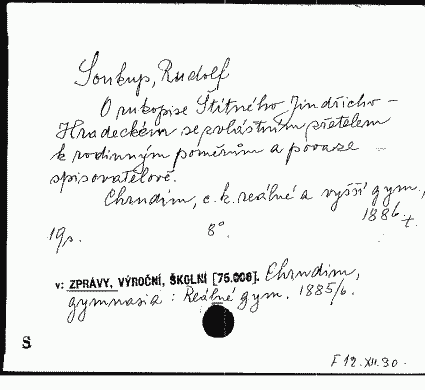 Soukup, Rudolf
O rukopise Štítného Jindřicho-
Hradeckém se zvláštním zřetelem
k rodinným poměrům a povaze
spisovatelově.
Chrudim, c. k. reálné a vyšší gym.,
1886.
19 s. 8°.
v: ZPRÁVY, VÝROČNÍ, ŠKOLNÍ [75.000]. Chrudim,
gymnasia: Reálné gym. 1885/6.
S
F 12.XII.30.